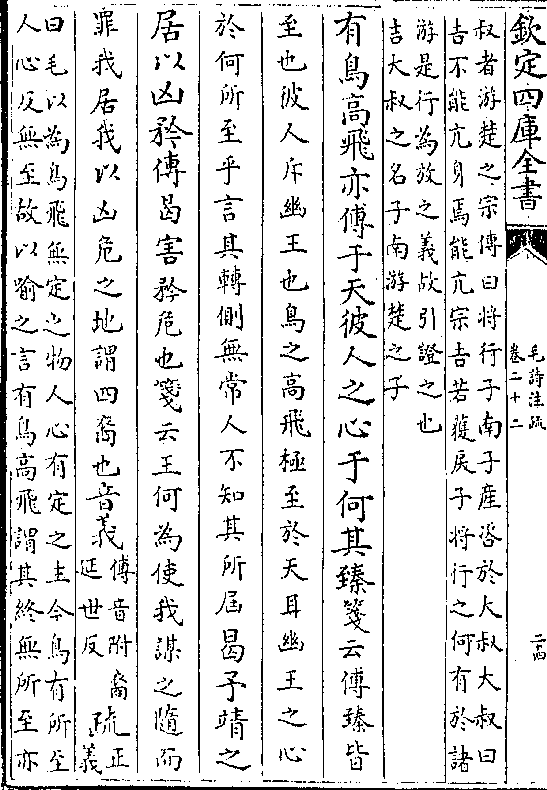 欽定四庫全書
毛詩注疏
卷二十二
二十四
叔者游楚之宗傳曰將行子南子産咨於大叔大叔曰
吉不能亢身焉能亢宗吉若獲戾子將行之何有於諸
游是行為放之義故引證之也
吉大叔之名子南游楚之子
有鳥高飛亦傅于天彼人之心于何其臻箋云傅臻皆
至也彼人斥幽王也鳥之高飛極至於天耳幽王之心
於何所至乎言其轉側無常人不知其所屆曷予靖之
居以凶矜傳曷害矜危也箋云王何為使我謀之隨而
罪我居我以凶危之地謂四裔也音義
傅音附裔
延世反
疏
正
義
曰毛以為鳥飛無定之物人心有定之主今鳥有所至
人心反無至故以喻之言有鳥高飛謂其終無所至亦